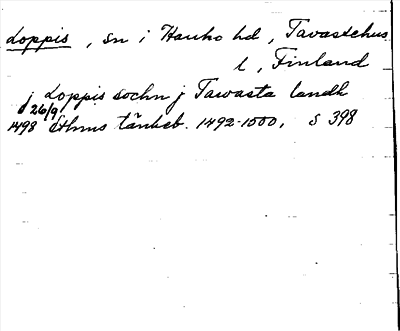 Loppis, sn i Hauho hd, Tavastehus
l, Finland
j Loppis sochn j Tawasta landh
26/9
1498 Sthms tänkeb. 1492-1500, s 398